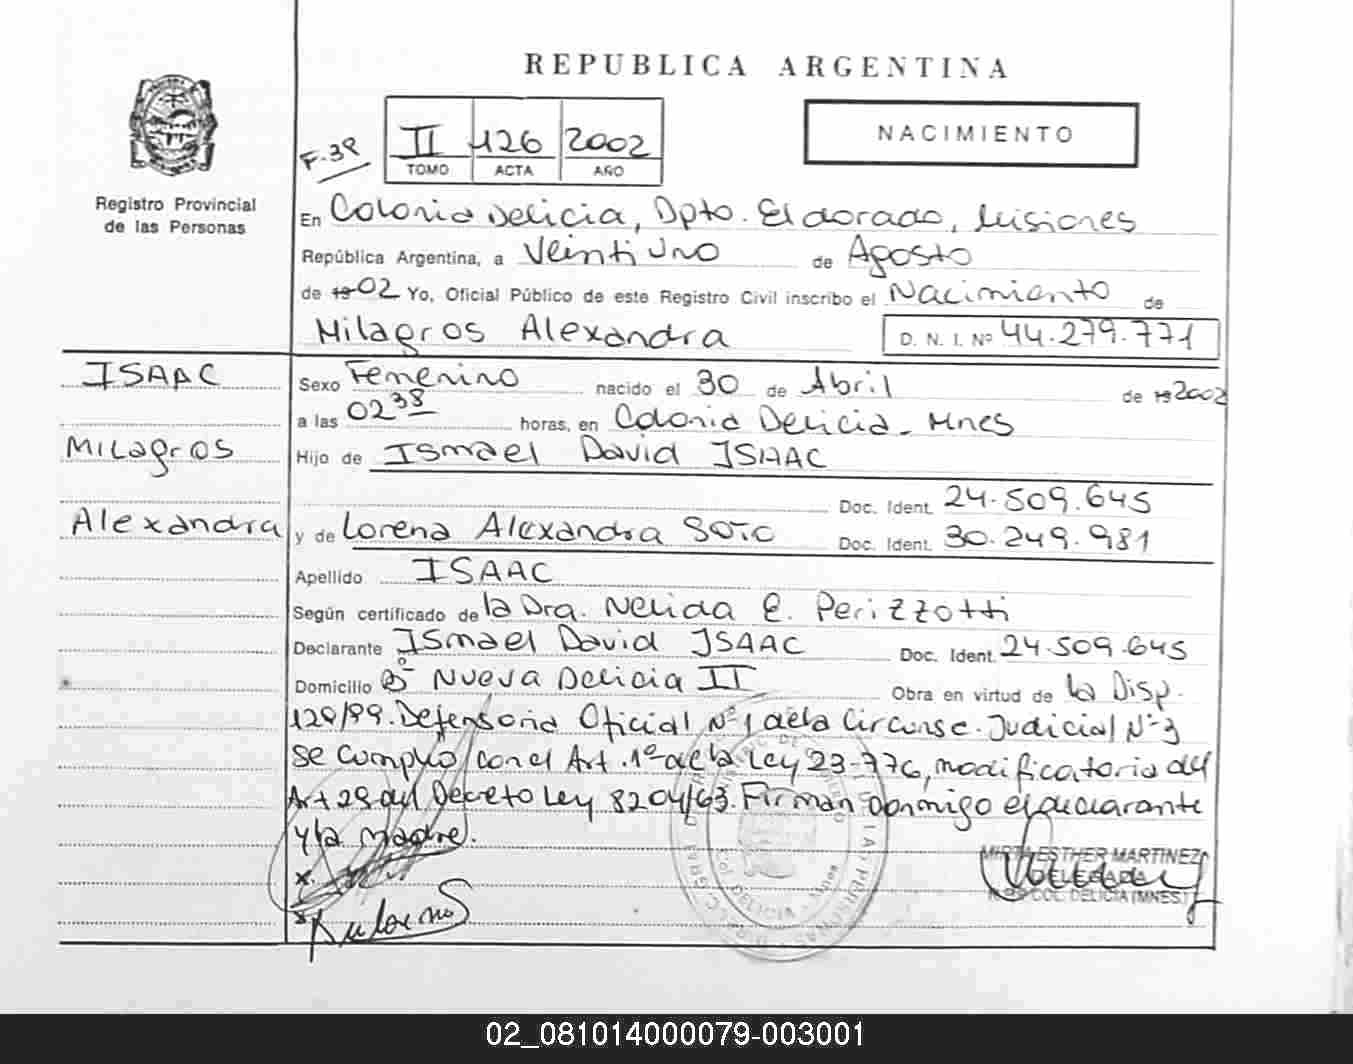 REPUBLICA ARGENTINA
Registro Provincial
de las Personas
F-39
II 126 2002
TOMO ACTA AÑO
NACIMIENTO
En Colonia Delicia, Dpto. Eldorado, Misiones
República Argentina, a Veintiuno de Agosto
de 19 02 Yo, Oficial Público de este Registro Civil inscribo el Nacimiento de
Milagros Alexandra D. N. I. Nº 44.279.771
ISAAC
Milagros
Alexandra
Sexo Femenino nacido el 30 de Abril de 19 2002
a las 02 38 horas, en Colonia Delicia - Mnes
Hijo de Ismael David ISAAC
Doc. Ident. 24.509.645
y de Lorena Alexandra SOTO Doc. Ident. 30.249.981
Apellido ISAAC
Según certificado de la Dra. Nelida E. Perizzotti
Declarante Ismael David ISAAC Doc. Ident. 24.509.645
Domicilio Bº Nueva Delicia II Obra en virtud de la Disp.
120/99. Defensoria Oficial Nº 1 de la Circunsc. Judicial Nº 3
se cumplió con el Art. 1º de la Ley 23-776, modificatoria del
Art 29 del Decreto Ley 8204/63. Firman conmigo el declarante
y la madre.
x.
x
MIRTA ESTHER MARTINEZ
DELEGADA
COL. DELICIA (MNES.)
02_081014000079-003001